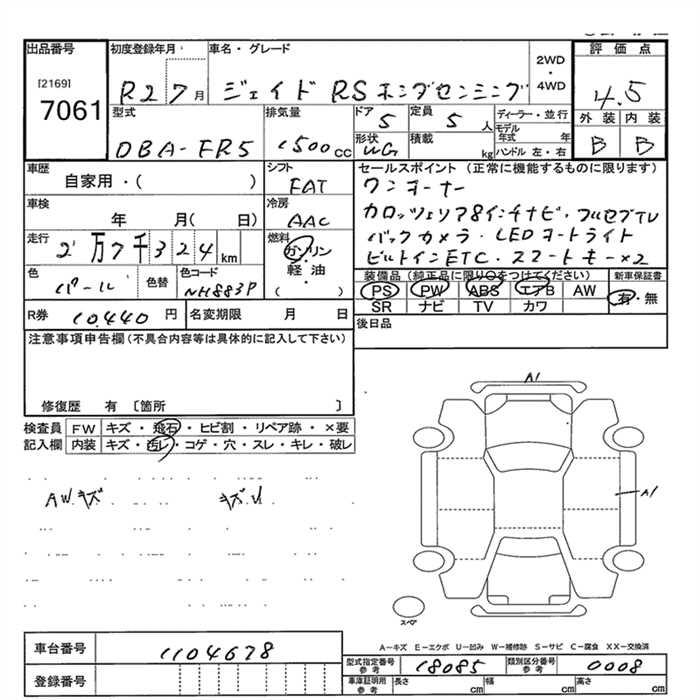 出品番号 初度登録年月 車名・グレード 2WD・4WD 評価点
[2169]
7061 R2 7月 ジェイド RS ホンダセンシング 4.5
型式 排気量 ドア 定員 ディーラー・並行 外装 内装
DBA-FR5 1500cc 5 5人 モデル年式 年 B B
形状 WG 積載 kg ハンドル 左・右
車歴 シフト セールスポイント(正常に機能するものに限ります)
自家用・( ) FAT ワンオーナー
車検 冷房 カロッツェリア8インチナビ・フルセグTV
年 月( 日) AAC バックカメラ・LEDヘッドライト
走行 燃料 ビルトインETC・スマートキー×2
2万7千324km ガソリン・軽油・( )
色 色替 色コード 装備品(純正品に限り○をつけてください) 新車保証書
パール NH883P PS PW ABS エアB AW 有・無
SR ナビ TV カワ
R券 10.440円 名変期限 月 日 後日品
注意事項申告欄(不具合内容等は具体的に記入して下さい)
修復歴 有 〔箇所 〕
検査員 FW キズ・飛石・ヒビ割・リペア跡・×要
記入欄 内装 キズ・汚レ・コゲ・穴・スレ・キレ・破レ
A1
AWキズ
A1
スペア
A-キズ E-エクボ U-凹み W-補修跡 S-サビ C-腐食 XX-交換済
車台番号 1104678 型式指定番号 参考 18085 類別区分番号 参考 0008
登録番号 車庫証明用 参考 長さ cm 幅 cm 高さ cm